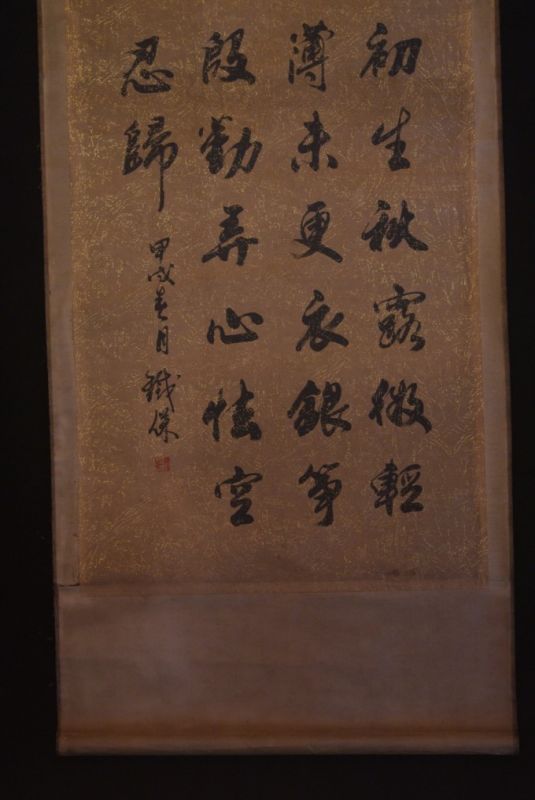 初生秋露微輕
薄未更衣銀箏
殷勤弄心怯空
忍歸
甲戌春月 鐵保